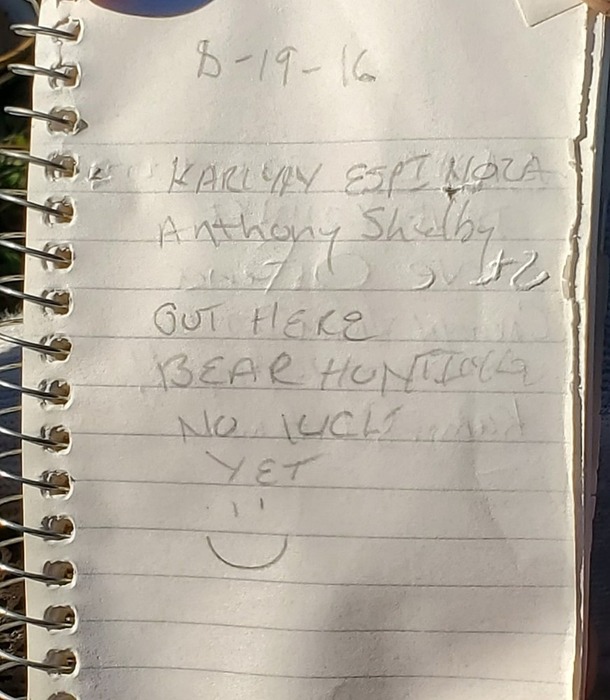 8-19-16
ESPINOZA
Anthony Shelby
OUT HERE
BEAR HUNTING
NO LUCK
YET